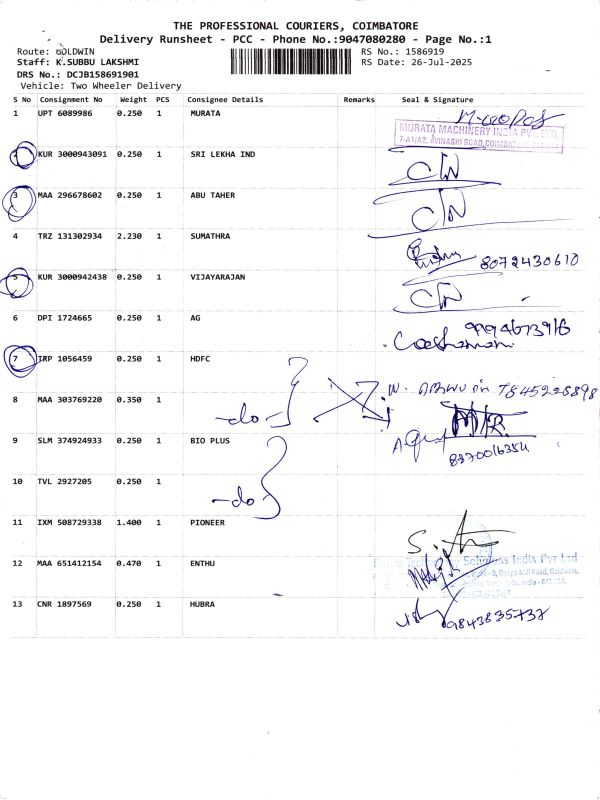 THE PROFESSIONAL COURIERS, COIMBATORE
Delivery Runsheet - PCC - Phone No.:9047080280 - Page No.:1
Route: GOLDWIN
RS No.: 1586919
Staff: K.SUBBU LAKSHMI
RS Date: 26-Jul-2025
DRS No.: DCJB158691901
Vehicle: Two Wheeler Delivery
S No Consignment No Weight PCS Consignee Details Remarks Seal & Signature
1 UPT 6089986 0.250 1 MURATA
MURATA MACHINERY INDIA PVT. LTD.
7-A1/A2, AVINASHI ROAD, COIMBATORE
2 KUR 3000943091 0.250 1 SRI LEKHA IND
3 MAA 296678602 0.250 1 ABU TAHER
4 TRZ 131302934 2.230 1 SUMATHRA
8072430610
5 KUR 3000942438 0.250 1 VIJAYARAJAN
6 DPI 1724665 0.250 1 AG
9994673916
7 TRP 1056459 0.250 1 HDFC
8 MAA 303769220 0.350 1
-do-
9 SLM 374924933 0.250 1 BIO PLUS
8270016354
10 TVL 2927205 0.250 1
-do-
11 IXM 508729338 1.400 1 PIONEER
12 MAA 651412154 0.470 1 ENTHU
Solutions India Pvt Ltd
13 CNR 1897569 0.250 1 HUBRA
9843835737